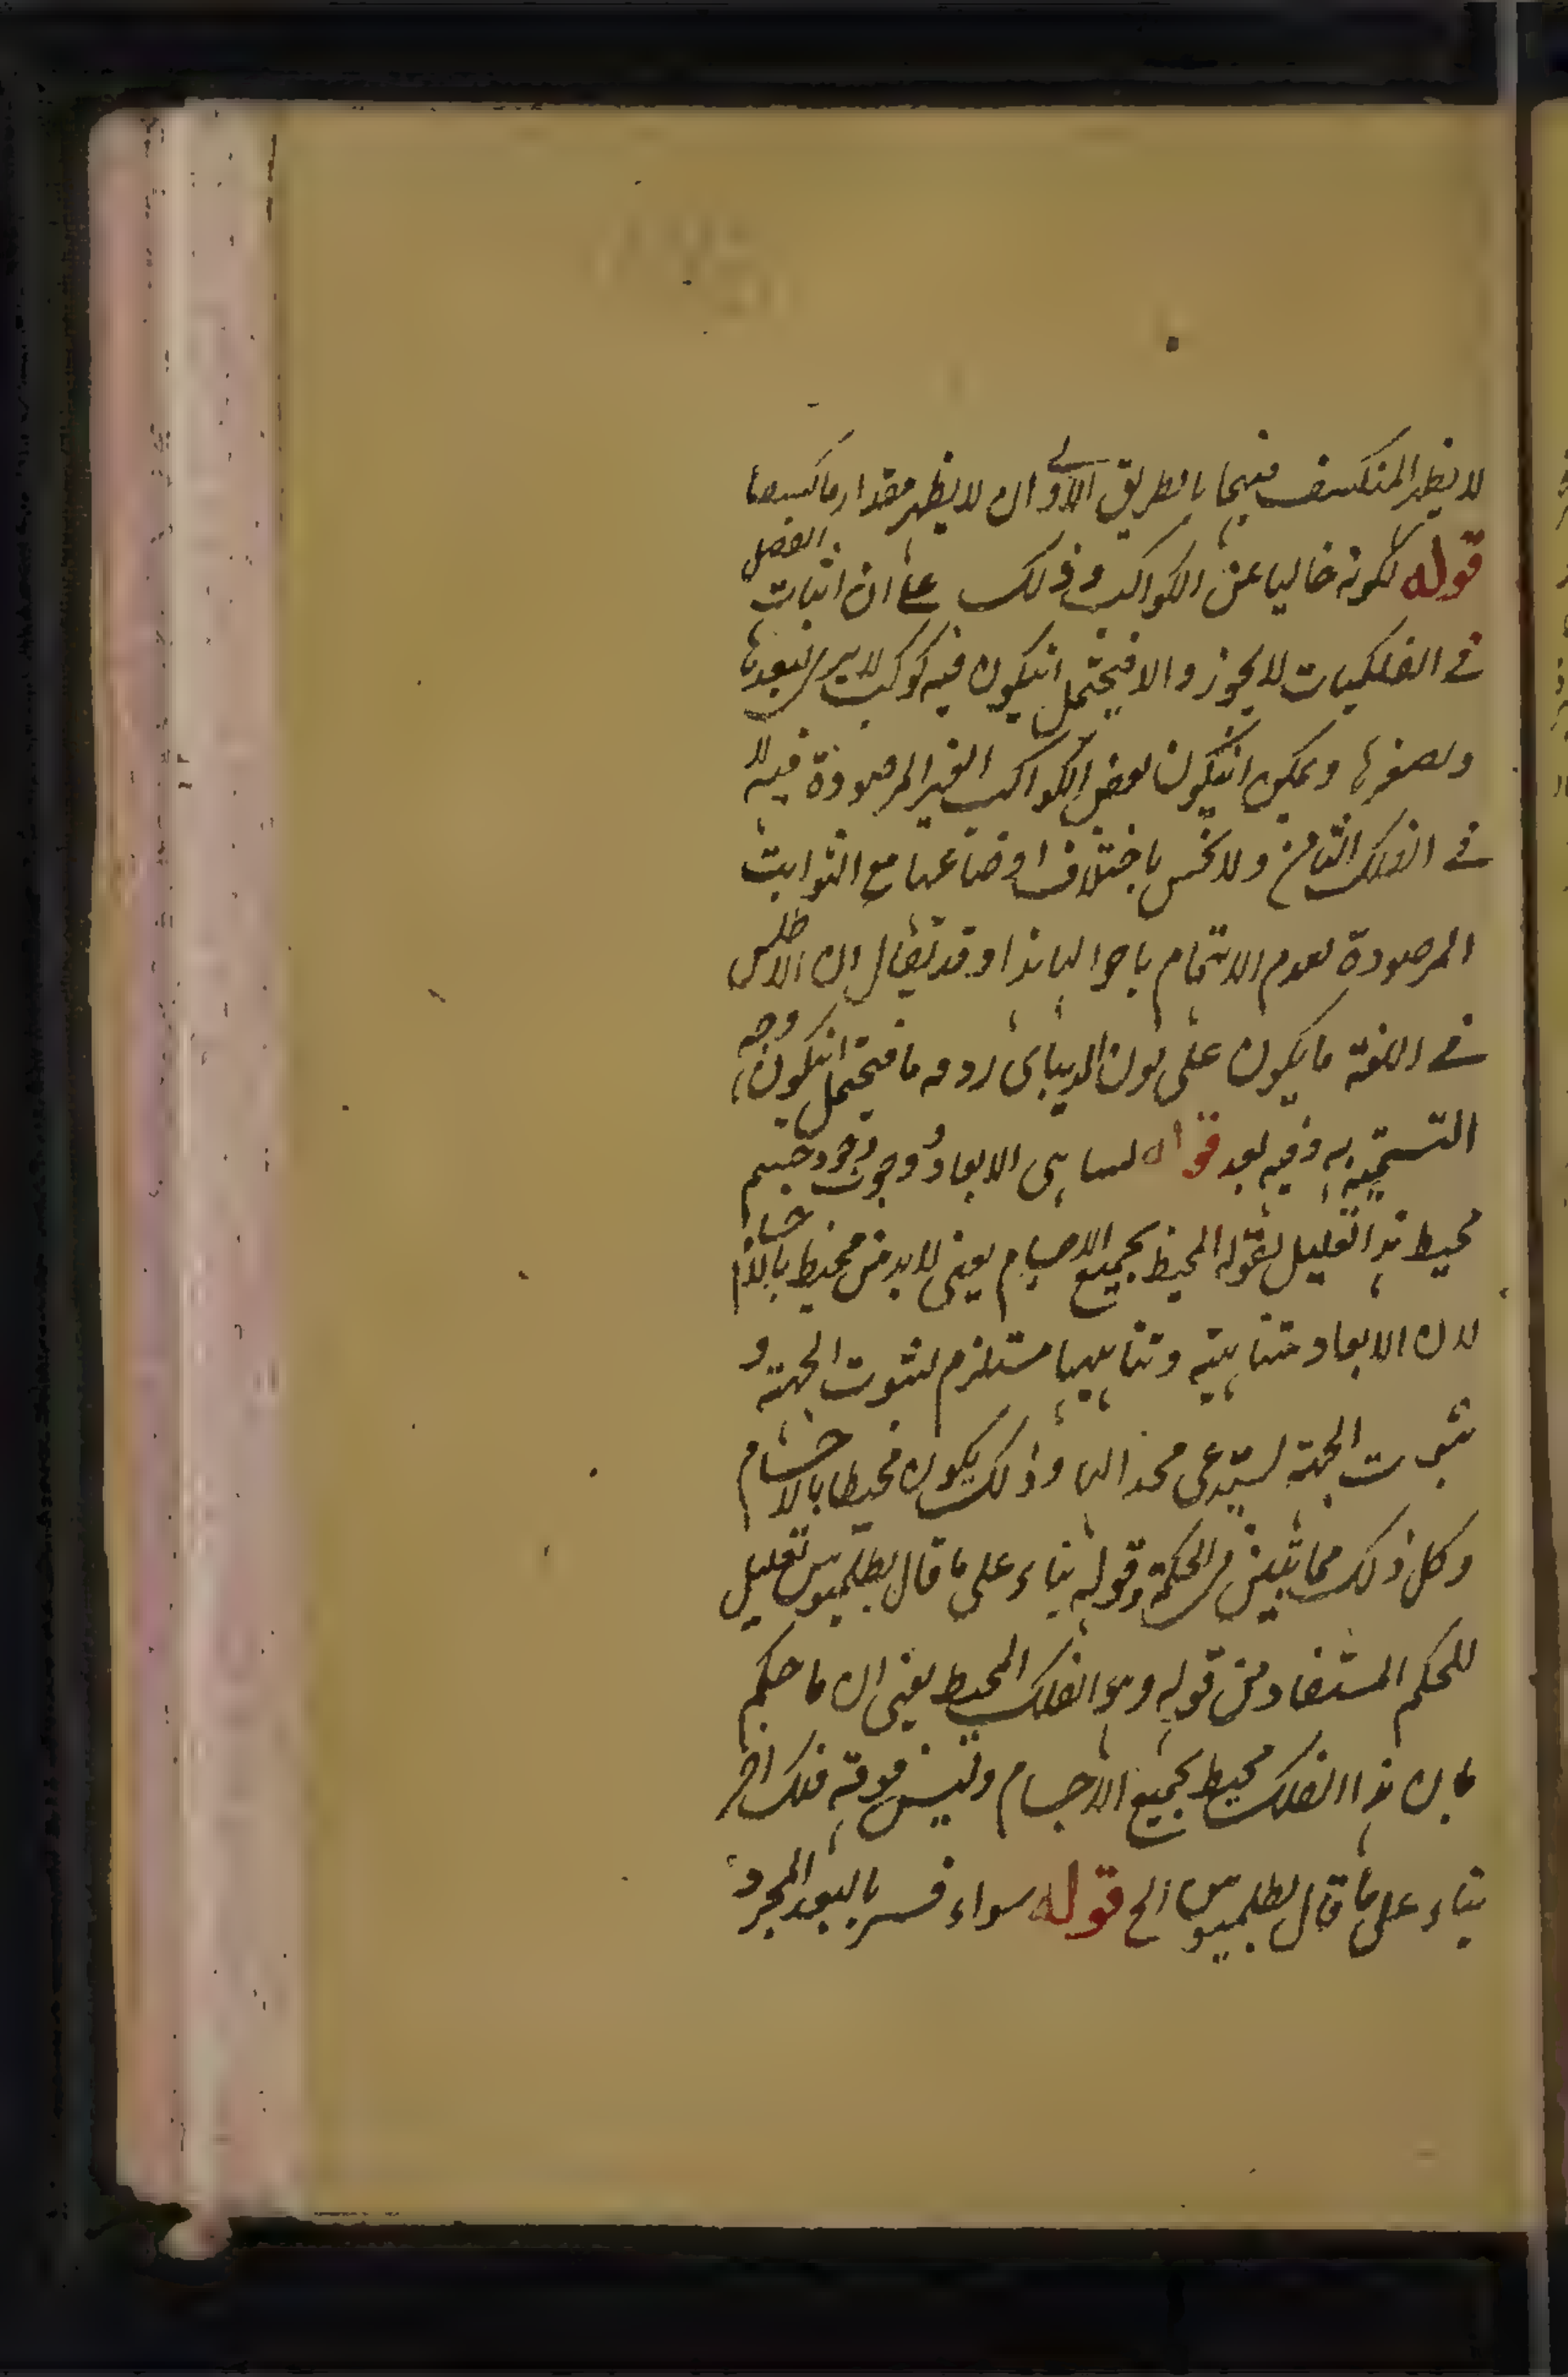 لا يظهر المنكسف فيهما بالطريق الاولى ان لا يظهر مقدار ما كسفا
قوله لكونه خاليا عن الكواكب وذلك على ان اثبات الفضل
في الفلكيات لا يجوز والا فيحتمل انيكون فيه كوكب لا يرى لبعدها
ولصغرها ويمكن انيكون بعض الكواكب الغير المرصودة فيه لا
في الفلك الثامن ولا نحس باختلاف اوضاعها مع الثوابت
المرصودة لعدم الاهتمام باحوالها هذا وقد يقال ان الاطلس
في اللغة ما يكون على لون الديباى فيحتمل انيكون وجه
التسمية به وفيه بعد قوله لتناهى الابعاد ووجوب وجود جسم
محيط هذا تعليل لقوله المحيط بجميع الاجسام يعنى لابد من محيط بالاجسام
لان الابعاد متناهية وتناهيها مستلزم لثبوت الجهة و
ثبوت الجهة يستدعى محددا لها وذلك يكون محيطا بالاجسام
وكل ذلك مما تبين فى الحكمة وقوله بناء على ما قال بطلميوس تعليل
للحكم المستفاد من قوله وهو الفلك المحيط يعنى ان ما حكم
بان هذا الفلك محيط بجميع الاجسام وليس فوقه فلك اخر
بناء على ما قال بطلميوس الخ قوله سواء فسر بالبعد المجرد